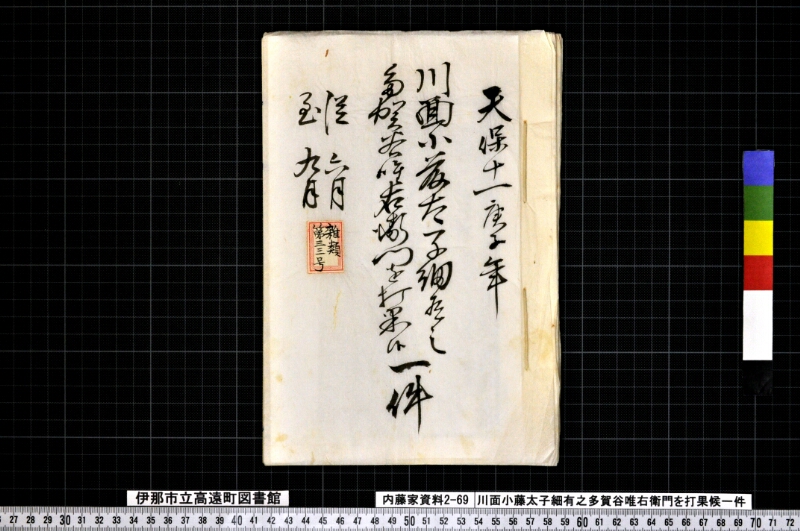 天保十一庚子年
川面小藤太子細有之
多賀谷唯右衛門を打果候一件
従六月
至九月
雑類
第三三号
伊那市立高遠町図書館
内藤家資料2-69 川面小藤太子細有之多賀谷唯右衛門を打果候一件
27 28 29 30 31 32 33 34 35 36 37 38 39 40 41 42 43 44 45 46 47 48 49 50 51 52 53 54 55 56 57 58 59 60 61 62 63 64 65 66 67 68 69 70 71 72